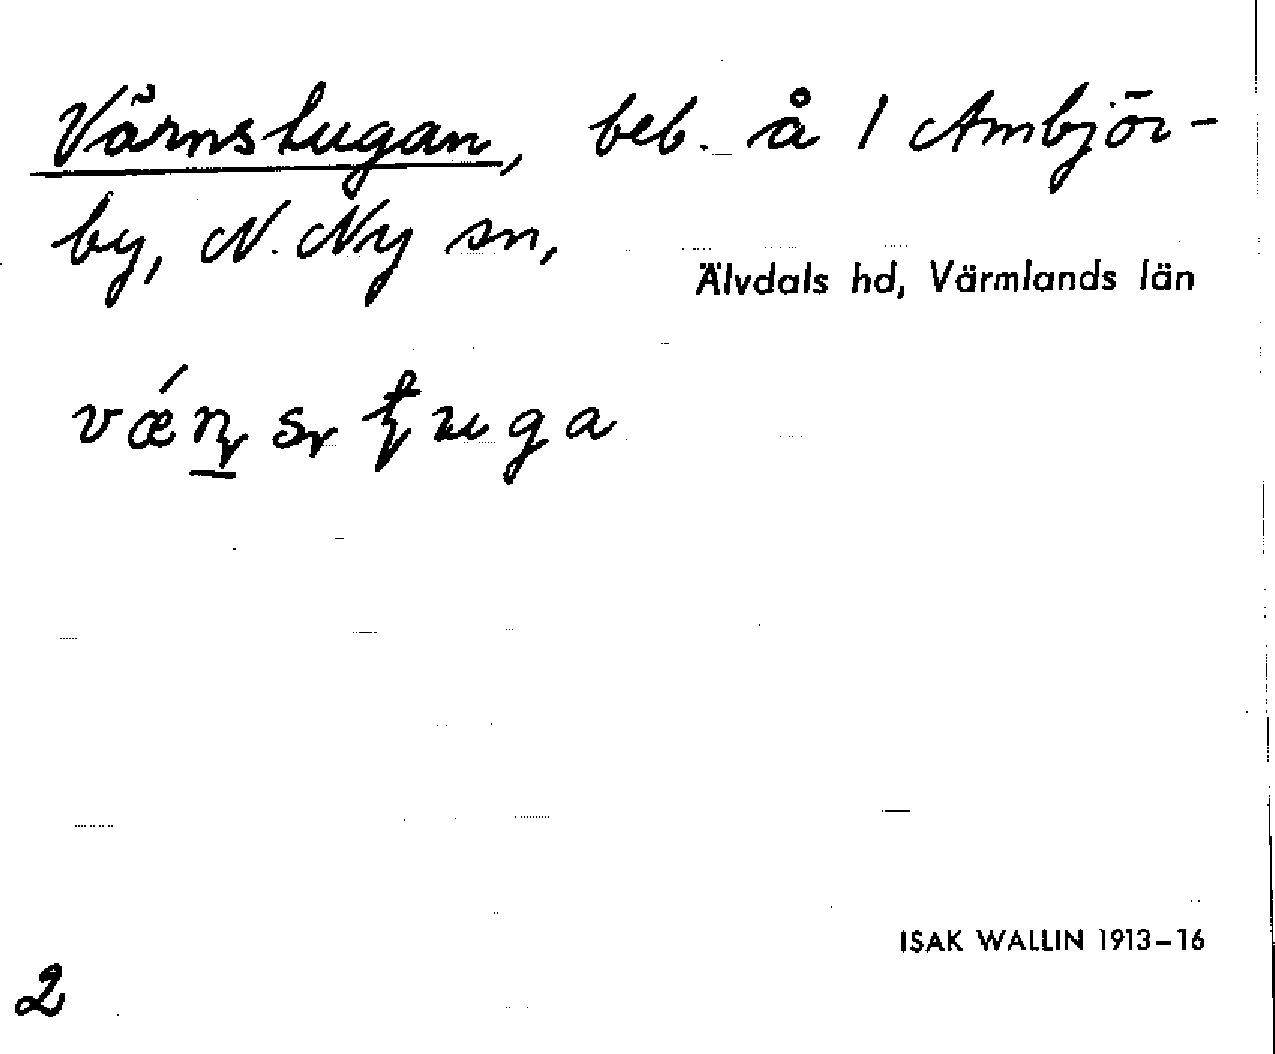 Värnstugan, beb. å 1 Ambjör-
by, N. Ny sn,
Älvdals hd, Värmlands län
ISAK WALLIN 1913–16
2